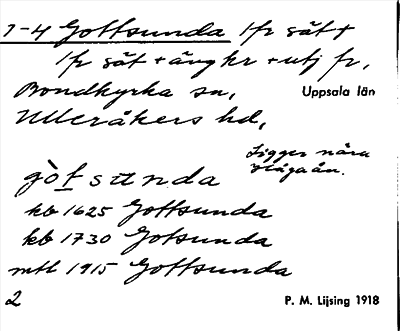 1-4 Gottsunda 1 fr sät +
1 fr sät + äng kr + utj fr,
Bondkyrka sn, Uppsala län
Ulleråkers hd,
Ligger nära
Hågaån.
gòtsunda
kb 1625 Gottsunda
kb 1730 Gotsunda
mtl 1915 Gottsunda
2 P. M. Lijsing 1918